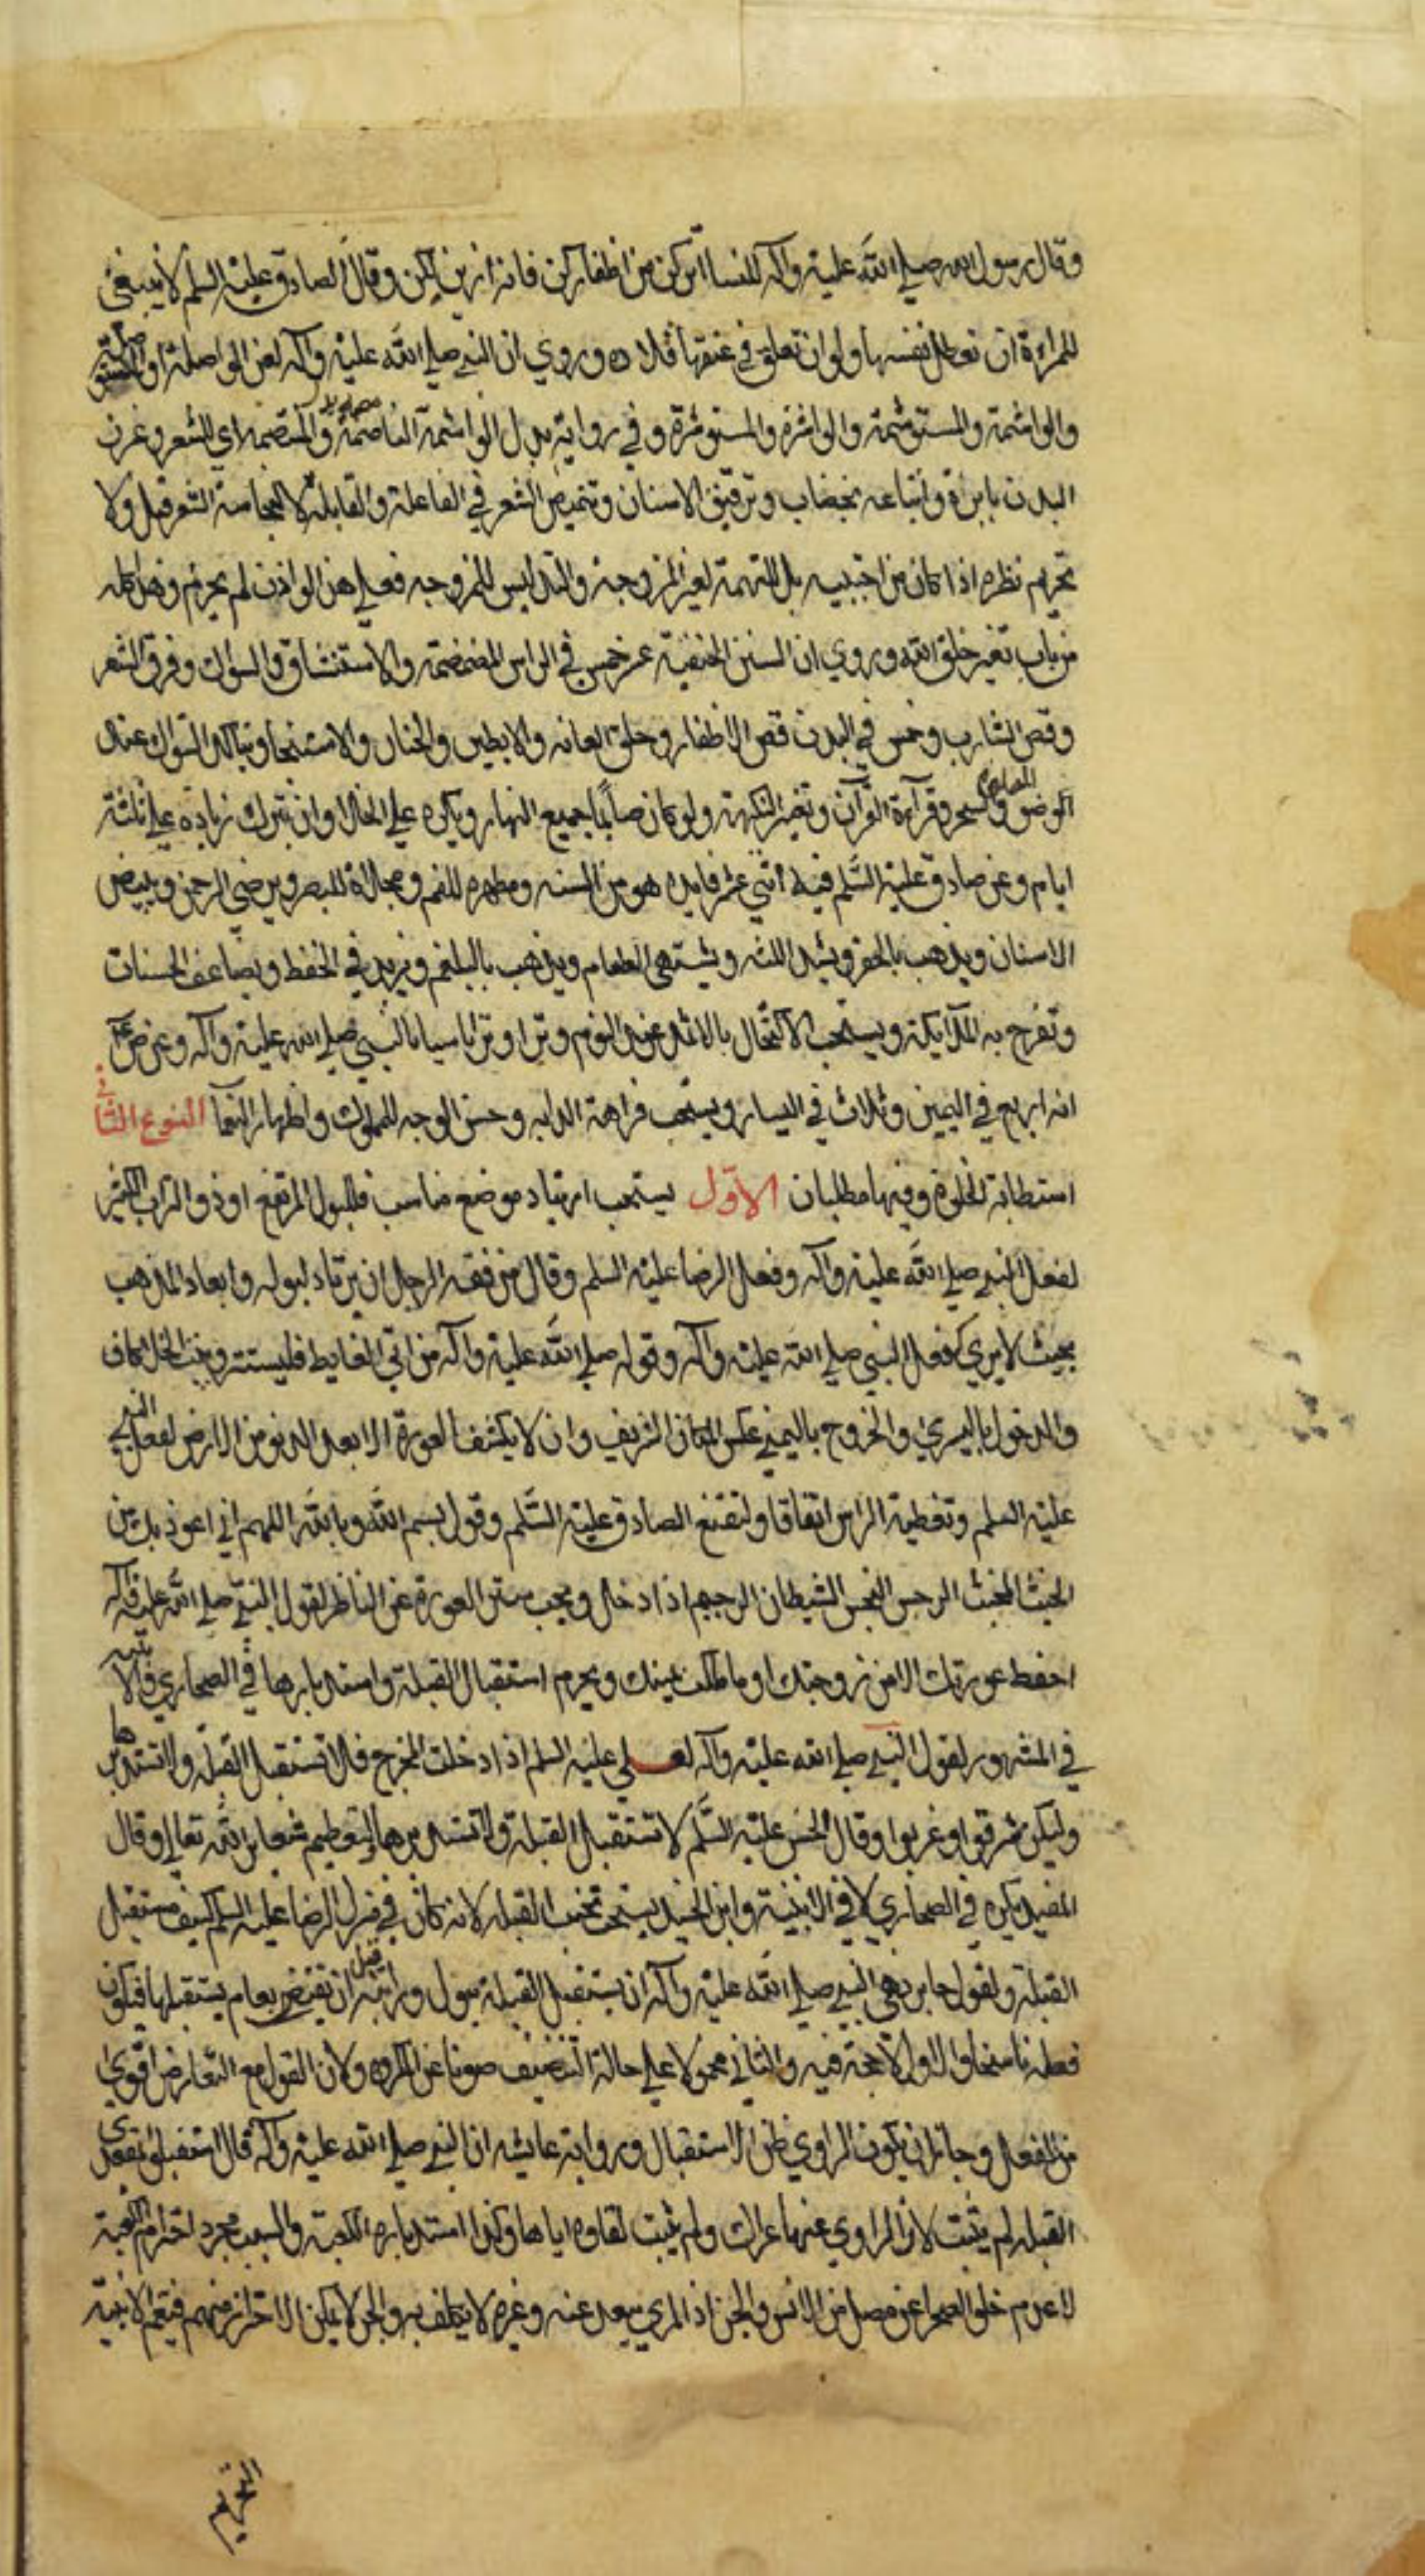 وقال رسول الله صلي الله عليه وآله للنسا اتركن من اظفاركن فانه ازين لكن وقال الصادق عليه السلم لا ينبغي
للمراءة ان تعطل نفسها ولو ان تعلق في عنقها قلاده وروي ان النبي صلي الله عليه وآله لعن الواصلة والمستوصلة
والواشمة والمستوشمة والواشرة والمستوشرة وفي رواية بدل الواشمة النامصة والمتنمصة اي الشعر وغرز
البدن بابرة واتباعه بخضاب وترقيق الاسنان وتنميص الشعر في الفاعلة والقابلة لا لنجاسة الشعر قبل ولا
تحريم نظره اذا كان من اجنبيه بل للتهمة لغير المزوجة والتدليس للمزوجه فعلي هذا لو اذن لم يحرم وقيل كله
من باب تغير خلق الله وروي ان السنن الحنفية عشر خمس في الراس المضمضة والاستنشاق والسواك وفرق الشعر
وقص الشارب وخمس في البدن قص الاظفار وحلق العانه والابطين والختان والاستنجا ويتاكد السواك عند
الوضؤ والصلوة والسحر وقرآءة القرآن وتغير النكهة ولو كان صايما جميع النهار ويكره علي الخلا وان يترك زياده علي ثلثة
ايام وعن صادق عليه السلم فيه اثني عشر فايده هو من السنه ومطهره للفم ومجلاة للبصر ويرضي الرحمن ويبيض
الاسنان ويذهب بالحفر ويشد اللثه ويشتهي الطعام ويذهب بالبلغم ويزيد في الحفظ ويضاعف الحسنات
وتفرح به الملايكة ويستحب الاكتحال بالاثمد عند النوم وترا وترا تاسيا بالنبي صلي الله عليه وآله وعن ض ع
انه اربع في اليمين وثلاث في اليسار ويستحب فراهة الدابه وحسن الوجه للمملوك واظهار النعما النوع الثاني
استطابة الخلوة وفيها مطلبان الاول يستحب ارتياد موضع مناسب فللبول المرتفع او ذو التراب الكثير
لفعل النبي صلي الله عليه وآله وفعل الرضا عليه السلم وقال من فقه الرجل ان يرتاد لبوله وابعاد المذهب
بحيث لا يري كفعل النبي صلي الله عليه وآله وقوله صلي الله عليه وآله من اتي الغايط فليستتر
والدخول باليسري والخروج باليمني عكس المكان الشريف وان لا يكشف العورة الا بعد الدنو من الارض لفعل النبي
عليه السلم وتغطية الراس اتفاقا ولتقنع الصادق عليه السلم وقول بسم الله وبالله اللهم اني اعوذ بك من
الخبث المخبث الرجس النجس الشيطان الرجيم اذا دخل ويجب ستر العورة عن الناظر لقول النبي صلي الله عليه وآله
احفظ عورتك الا من زوجتك او ما ملكت يمينك ويحرم استقبال القبلة واستدبارها في الصحاري والابنيه
في المشهور لقول النبي صلي الله عليه وآله لعلي عليه السلم اذا دخلت المخرج فلا تستقبل القبلة ولا تستدبرها
وليكن شرقوا او غربوا وقال الحسن عليه السلم لا تستقبل القبلة ولا تستدبرها ولتعظيم شعاير الله تعالي وقال
المفيد يكره في الصحاري لا في الابنية وابن الجنيد يستحب تجنب القبلة لانه كان في منزل الرضا عليه السلم كنيف مستقبل
القبلة ولقول جابر نهي النبي صلي الله عليه وآله ان يستقبل القبلة ببول ورايته قبل ان يقبض بعام يستقبلها فيكون
فعله ناسخا والاول لا حجة فيه والثاني محمولا علي حالة التنظيف صونا عن المكروه ولان القول مع التعارض اقوي
من الفعل وجاز ان يكون الراوي ظن الاستقبال ورواية عايشه ان النبي صلي الله عليه وآله قال استقبلوا بمقعدتي
القبله لم يثبت لان الراوي عنها عراك ولم يثبت لقاوه اياها وكذا استدباره الكعبة والسبب مجرد احترام الكعبة
لا عدم خلو الصحرا عن مصل من الانس والجن اذ المري يبعد عنه وغيره لا يكلف به والجن لا يمكن الاحتراز منهم فيعم الابنية
التحريم